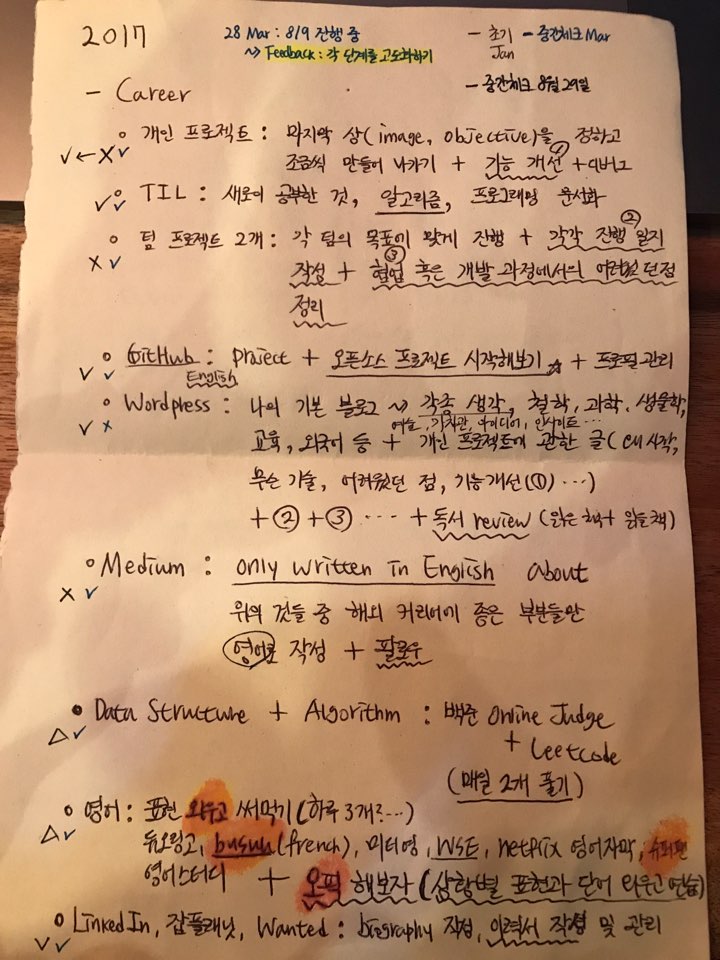 2017
28 Mar : 8/9 진행 중
→ Feedback : 각 단계를 고도화하기
- 초기 Jan
- 중간체크 Mar
- 중간체크 8월 29일
- Career
개인 프로젝트 : 마지막 상(image, objective)을 정하고
조금씩 만들어 나가기 + 기능 개선① + 디버그
TIL : 새로이 공부한 것, 알고리즘, 프로그래밍 문서화
팀 프로젝트 2개 : 각 팀의 목표에 맞게 진행 + 각각 진행 일지②
작성 + 협업③ 혹은 개발 과정에서의 어려웠던점
정리
GitHub : project + 오픈소스 프로젝트 시작해보기☆ + 프로필 관리
English
Wordpress : 나의 기본 블로그 → 각종 생각, 철학, 과학, 생물학,
예술, 가치관, 아이디어, 인사이트 ...
교육, 외국어 등 + 개인 프로젝트에 관한 글( 시작,
무슨 기술, 어려웠던 점, 기능개선(①) ...)
+ ② + ③ .... + 독서 review (읽은 책 + 읽을 책)
Medium : only written in English about
위의 것들 중 해외 커리어에 좋은 부분들만
영어로 작성 + 팔로우
Data Structure + Algorithm : 백준 Online Judge
+ Leetcode
(매일 2개 풀기)
영어 : 표현 외우고 써먹기(하루 3개?...)
듀오링고, busuu(french), 미티영, WSE, netflix 영어자막, 슈퍼팬
영어스터디 + 오픽 해보자 (상황별 표현과 단어 외우고 연습)
LinkedIn, 잡플래닛, Wanted : biography 작성, 이력서 작성 및 관리